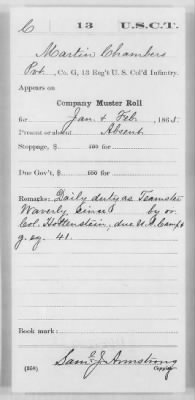 C 13 U.S.C.T.
Martin Chambers
Pvt., Co. G, 13 Reg't U. S. Col'd Infantry.
Appears on
Company Muster Roll
for Jan & Feb, 1865.
Present or absent Absent
Stoppage, $ 100 for
Due Gov't, $ 100 for
Remarks: Daily duty as Teamster
Waverly since by or.
Col. Hottenstein, due U.S. Camp &
g. eq. 41.
Book mark:
Saml J. Armstrong
(358) Copyist.